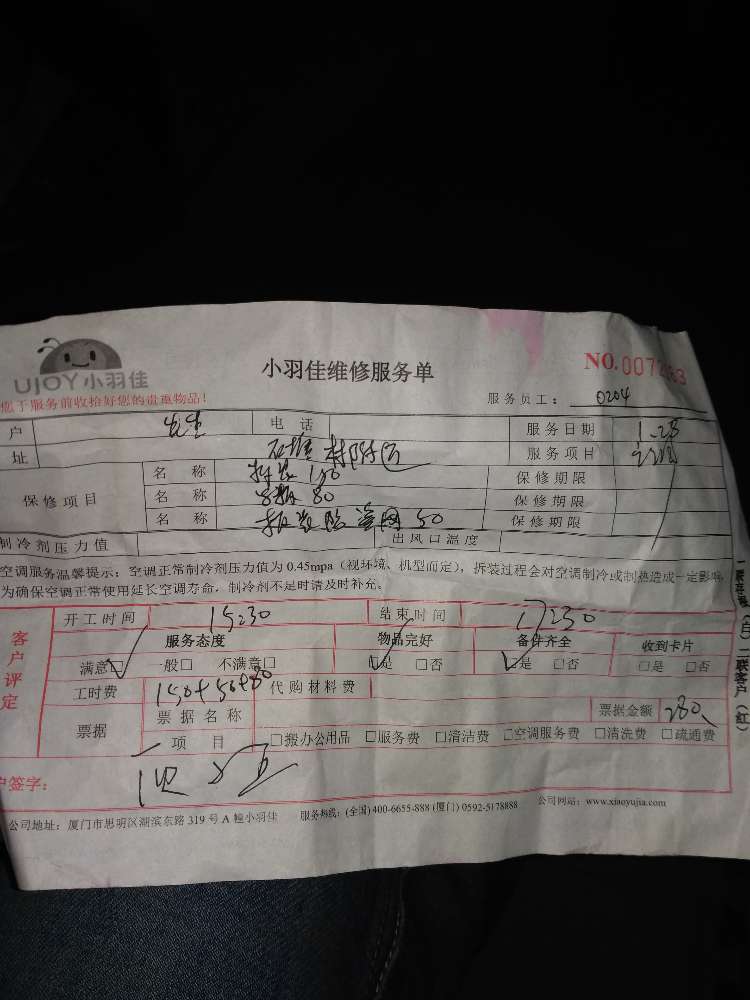 UJOY小羽佳
小羽佳维修服务单
NO.
您于服务前收拾好您的贵重物品!
服务员工: 0204
户 先生 电话 服务日期 1.28
址 村附近 服务项目
保修项目
名称 拆装150 保修期限
名称 80 保修期限
名称 拆装防盗网50 保修期限
制冷剂压力值 出风口温度
空调服务温馨提示:空调正常制冷剂压力值为0.45mpa(视环境、机型而定),拆装过程会对空调制冷或制热造成一定影响,
为确保空调正常使用延长空调寿命,制冷剂不足时请及时补充。
客户评定
开工时间 15:30 结束时间 17:30
服务态度 物品完好 备件齐全 收到卡片
满意□ 一般□ 不满意□ □是 □否 □是 □否 □是 □否
工时费 150+50+80 代购材料费
票据 票据名称 票据金额 280
项目 □搬办公用品 □服务费 □清洁费 □空调服务费 □清洗费 □疏通费
户签字:
公司地址:厦门市思明区湖滨东路319号A幢小羽佳 服务热线:(全国)400-6655-888(厦门)0592-5178888 公司网站:www.xiaoyujia.com
(白)二联客户(红)